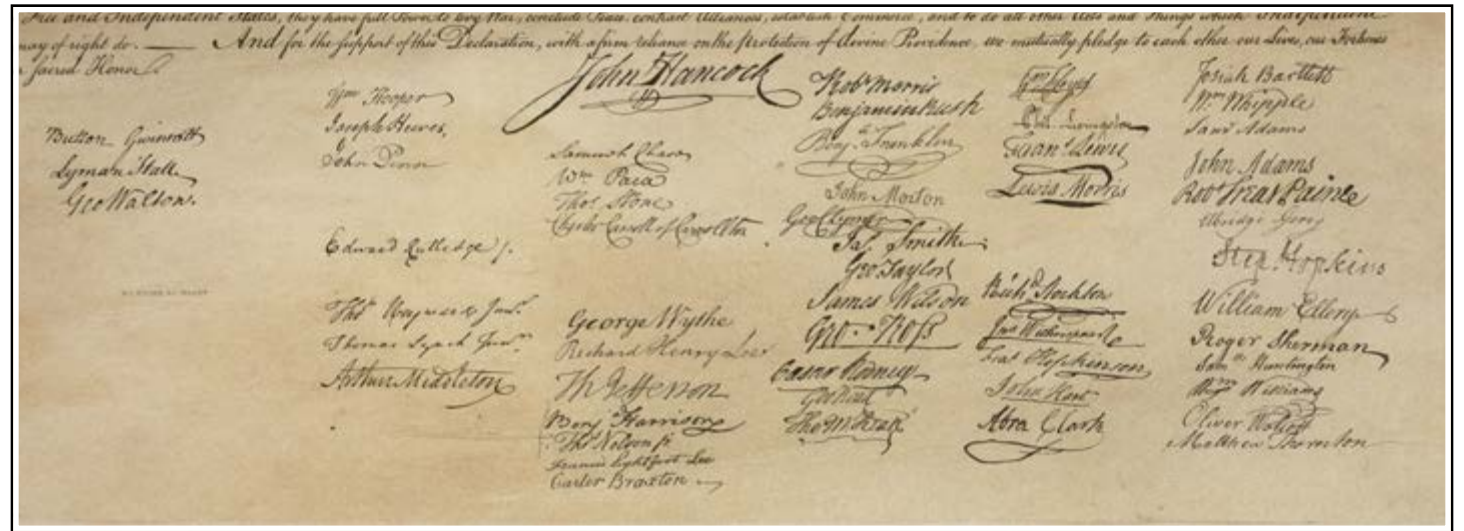 Free and Independent States, they have full Power to levy War, conclude Peace, contract Alliances, establish Commerce, and to do all other Acts and Things which Independent
may of right do. — And for the support of this Declaration, with a firm reliance on the Protection of divine Providence, we mutually pledge to each other our Lives, our Fortunes
sacred Honor.
Button Gwinnett
Lyman Hall
Geo Walton.
Wm Hooper
Joseph Hewes,
John Penn
Edward Rutledge /.
Thos Heyward Junr.
Thomas Lynch Junr.
Arthur Middleton
John Hancock
Samuel Chase
Wm Paca
Thos Stone
Charles Carroll of Carrollton
George Wythe
Richard Henry Lee
Th Jefferson
Benj Harrison
Thos Nelson jr
Francis Lightfoot Lee
Carter Braxton
Robt Morris
Benjamin Rush
Benja Franklin
John Morton
Geo Clymer
Jas Smith
Geo Taylor
James Wilson
Geo. Ross
Caesar Rodney
Geo Read
Tho M:Kean
Wm Floyd
Phil. Livingston
Frans Lewis
Lewis Morris
Richd Stockton
Jno Witherspoon
Fras Hopkinson
John Hart
Abra Clark
Josiah Bartlett
Wm Whipple
Saml Adams
John Adams
Robt Treat Paine
Elbridge Gerry
Step. Hopkins
William Ellery
Roger Sherman
Saml Huntington
Wm Williams
Oliver Wolcott
Matthew Thornton